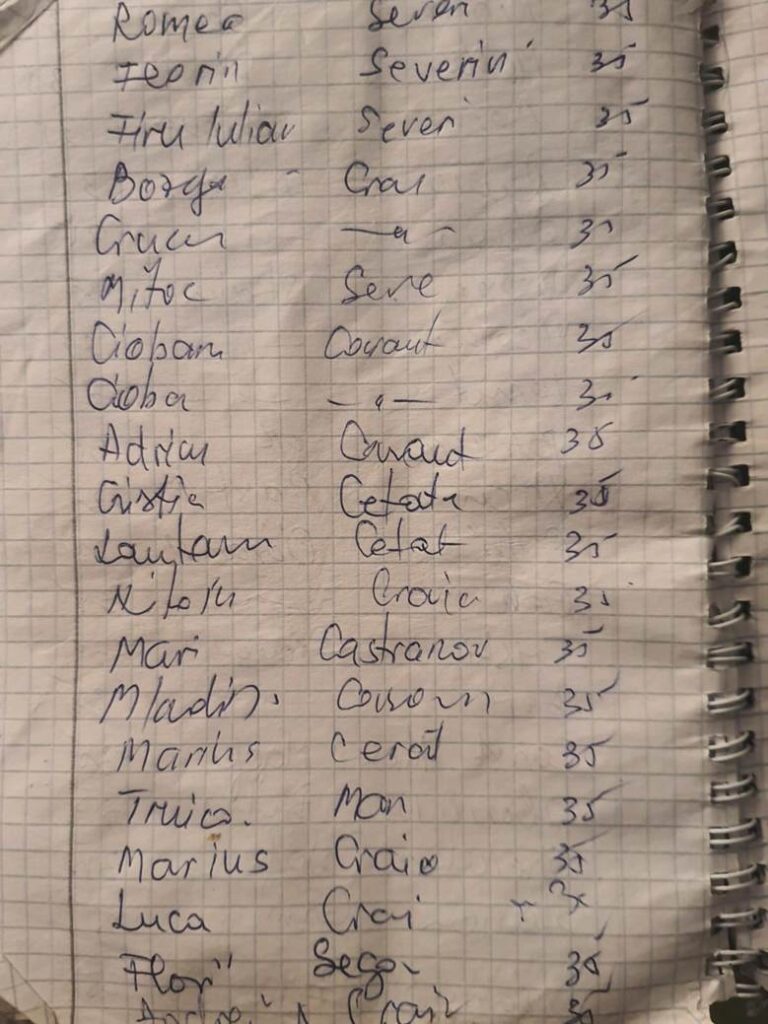 Romeo Severi 35
Florin Severin 35
Firu Iulian Severi 35
Bozga - Crai 35
Cracu — " — 35
Mitoc Seve 35
Cioban Covaut 35
Cioba — " — 35
Adrian Covaud 35
Cristia Cetate 35
Lautaru Cetat 35
Nitoiu Craio 35
Mari Castranov 35
Mladin. 35
Marius Cerăt 35
Truica. Man 35
Marius Craio 35
Luca Crai
Florii Sego 35
Andrei Crai 35